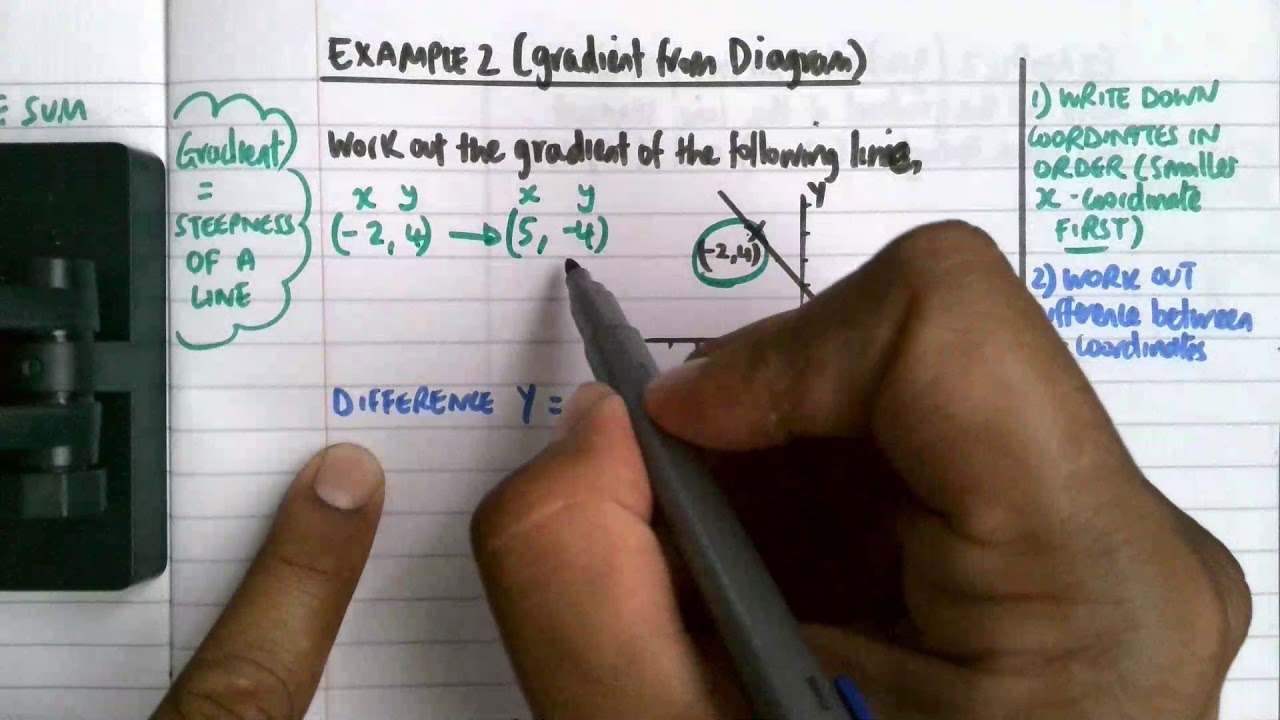 EXAMPLE 2 (gradient from Diagram)
E SUM
Gradient
=
STEEPNESS
OF A
LINE
Work out the gradient of the following line,
x y x y
(-2, 4) → (5, -4)
Y
(-2,4)
DIFFERENCE Y =
1) WRITE DOWN
COORDINATES IN
ORDER (Smaller
x - Coordinate
FIRST)
2) WORK OUT
ifference between
Coordinates